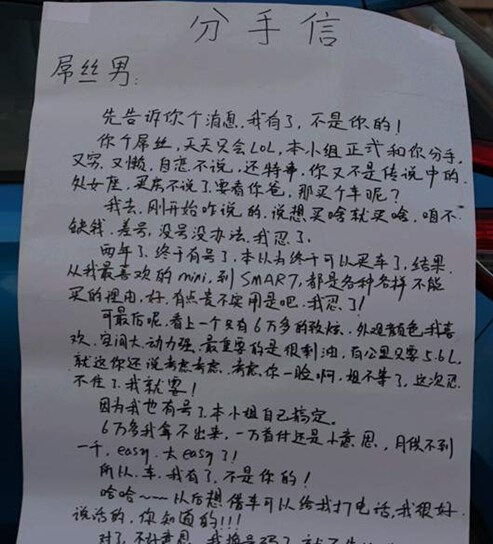 分手信
屌丝男：
先告诉你个消息,我有了,不是你的！
你个屌丝,天天只会LOL,本小姐正式和你分手,
又穷,又懒,自恋不说,还特事,你又不是传说中的
处女座,买房不说了要看你爸,那买个车呢？
我去,刚开始咋说的,说想买啥就买啥,咱不
缺钱,差号,没号没办法,我忍了.
两年了,终于有号了,本以为终于可以买车了,结果
从我最喜欢的mini,到SMART,都是各种各样不能
买的理由,好,有点贵不实用是吧,我忍了！
可最后呢,看上一个只有6万多的致炫,外观颜色我喜
欢,空间大,动力强,最重要的是很省油,百公里只要5.6L,
就这你还说考虑考虑,考虑你一脸啊,姐不等了,这次忍
不住了,我就要！
因为我也有号了,本小姐自己搞定。
6万多我拿不出来,一万首付还是小意思,月供不到
一千,easy,太easy了！
所以,车,我有了,不是你的！
哈哈～～以后想借车可以给我打电话,我很好
说话的,你知道的!!!
对了,不好意思,我换号码了